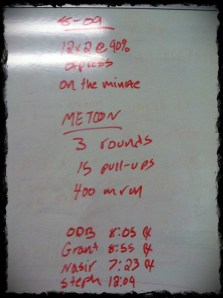 5-09
12x2 @ 90%
on the minute
METCON
3 rounds
15 pull-ups
400 m run
ODB 8:05
Grant 8:55
Nasir 7:23
Steph 18:09